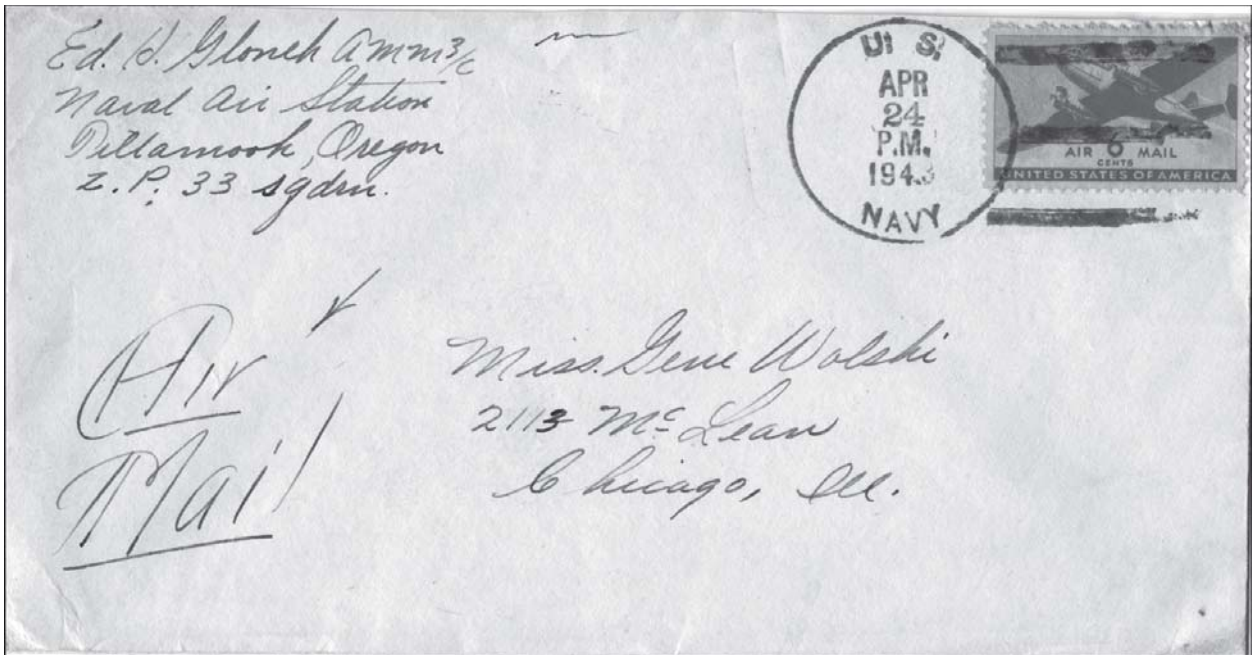 Ed. H. Glonek AMM 3/c
Naval Air Station
Tillamook, Oregon
Z.P. 33 sqdrn.
U. S.
APR
24
P.M.
1943
NAVY
AIR 6 MAIL
CENTS
UNITED STATES OF AMERICA
Air
Mail
Miss. Gene Wolski
2113 Mc Lean
Chicago, Ill.